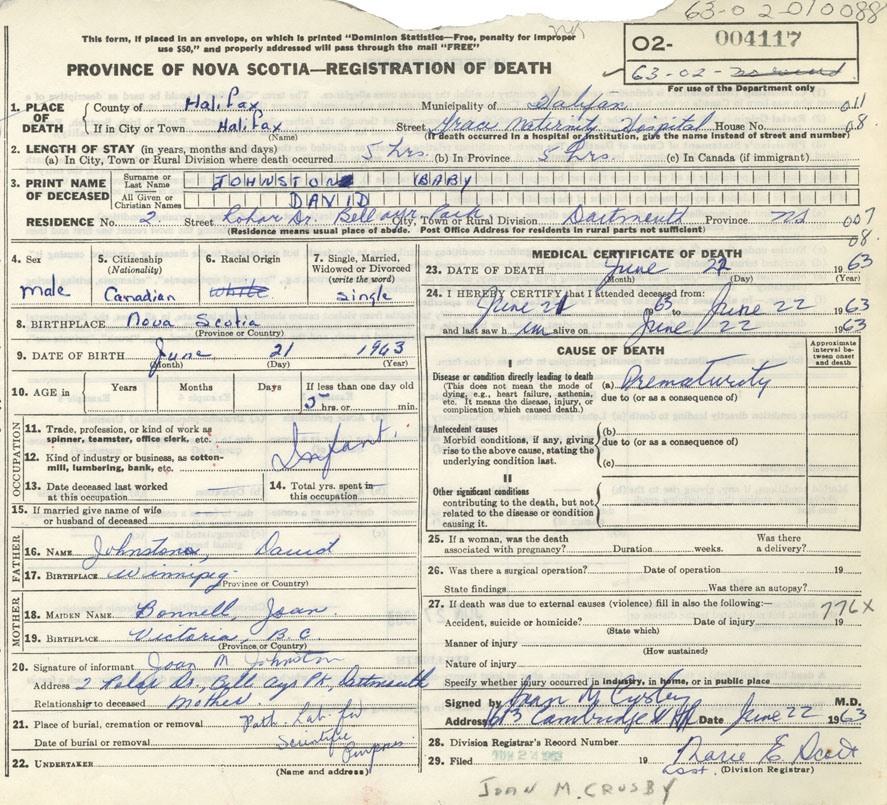 63-02-010088
This form, if placed in an envelope, on which is printed "Dominion Statistics—Free, penalty for improper
use $50," and properly addressed will pass through the mail "FREE"
02- 004117
PROVINCE OF NOVA SCOTIA—REGISTRATION OF DEATH
63-02-
For use of the Department only
1. PLACE OF DEATH
County of Halifax Municipality of Halifax 011
If in City or Town Halifax Street Grace Maternity Hospital House No. 08.
(Name) (If death occurred in a hospital or institution, give the name instead of street and number)
2. LENGTH OF STAY (in years, months and days)
(a) In City, Town or Rural Division where death occurred 5 hrs. (b) In Province 5 hrs. (c) In Canada (if immigrant)
3. PRINT NAME OF DECEASED
Surname or Last Name JOHNSTON BABY
All Given or Christian Names DAVID
RESIDENCE No. 2. Street Dr. Bell Park City, Town or Rural Division Dartmouth Province NS 007
(Residence means usual place of abode. Post Office Address for residents in rural parts not sufficient) 08.
4. Sex
Male
5. Citizenship
(Nationality)
Canadian
6. Racial Origin
White
7. Single, Married,
Widowed or Divorced
(write the word)
Single
8. BIRTHPLACE Nova Scotia
(Province or Country)
9. DATE OF BIRTH June 21 1963
(Month) (Day) (Year)
10. AGE in Years Months Days If less than one day old
5 hrs. or min.
OCCUPATION
11. Trade, profession, or kind of work as
spinner, teamster, office clerk, etc.
Infant.
12. Kind of industry or business, as cotton-
mill, lumbering, bank, etc.
13. Date deceased last worked
at this occupation
14. Total yrs. spent in
this occupation
15. If married give name of wife
or husband of deceased
FATHER
16. NAME Johnston, David
17. BIRTHPLACE Winnipeg
(Province or Country)
MOTHER
18. MAIDEN NAME Bonnell, Joan
19. BIRTHPLACE Victoria, B.C
(Province or Country)
20. Signature of informant Joan M Johnston
Address 2 Dr., Bell Pk, Dartmouth
Relationship to deceased Mother
21. Place of burial, cremation or removal Path. Lab. for
Date of burial or removal Scientific
Purposes
22. UNDERTAKER
(Name and address)
MEDICAL CERTIFICATE OF DEATH
23. DATE OF DEATH June 22 1963
(Month) (Day) (Year)
24. I HEREBY CERTIFY that I attended deceased from:
June 21 1963 to June 22 1963
and last saw h im alive on June 22 1963
CAUSE OF DEATH
Approximate interval between onset and death
I
Disease or condition directly leading to death
(This does not mean the mode of
dying, e.g., heart failure, asthenia,
etc. It means the disease, injury, or
complication which caused death.)
(a) Prematurity
due to (or as a consequence of)
Antecedent causes
Morbid conditions, if any, giving
rise to the above cause, stating the
underlying condition last.
(b)
due to (or as a consequence of)
(c)
II
Other significant conditions
contributing to the death, but not
related to the disease or condition
causing it.
25. If a woman, was the death
associated with pregnancy? Duration weeks. Was there
a delivery?
26. Was there a surgical operation? Date of operation 19
State findings Was there an autopsy?
27. If death was due to external causes (violence) fill in also the following:— 776X
Accident, suicide or homicide? Date of injury 19
(State which)
Manner of injury
(How sustained)
Nature of injury
Specify whether injury occurred in industry, in home, or in public place
Signed by Joan M Crosby M.D.
Address Cambridge Date June 22 1963
28. Division Registrar's Record Number
29. Filed 19 Marie E
(Division Registrar)
JOAN M. CRUSBY